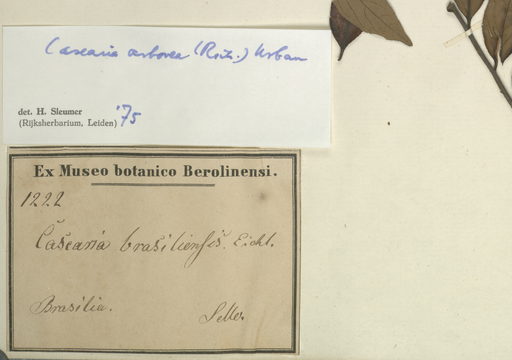 Casearia arborea (Rich.) Urban
det. H. Sleumer '75
(Rijksherbarium, Leiden)
Ex Museo botanico Berolinensi.
1222
Casearia brasiliensis. Eichl.
Brasilia. Sello.